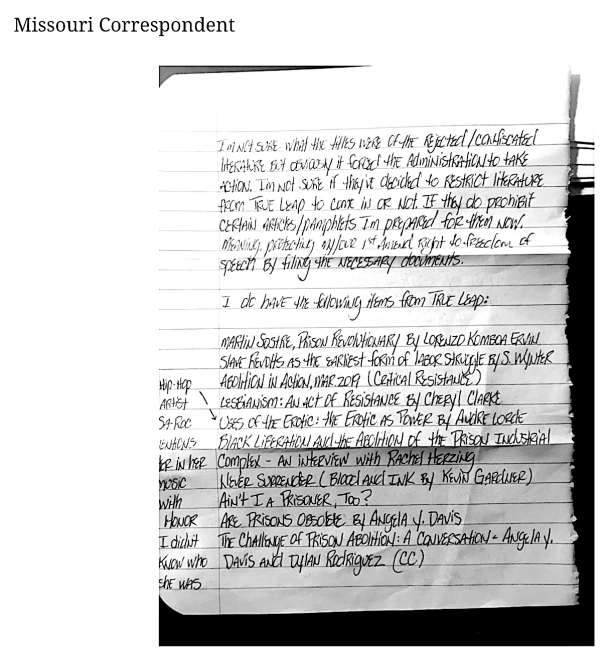 Missouri Correspondent
I'm not sure what the titles were of the rejected/confiscated
literature but obviously it forced the Administration to take
action. I'm not sure if they've decided to restrict literature
from True Leap to come in or not. If they do prohibit
certain articles/pamphlets I'm prepared for them now.
Meaning, protecting my/our 1st Amend right to freedom of
speech by filing the necessary documents.
I do have the following items from True Leap:
Martin Sostre, Prison Revolutionary by Lorenzo Komboa Ervin
Slave Revolts as the earliest form of labor struggle by S. Wynter
Abolition in Action, Mar 2019 (Critical Resistance)
Lesbianism: An act of Resistance by Cheryl Clarke
Uses of the Erotic: the Erotic as Power by Audre Lorde
Black Liberation and the Abolition of the Prison Industrial
Complex - An interview with Rachel Herzing
Never Surrender (Blood and Ink by Kevin Gardner)
Ain't I A Prisoner, Too?
Are Prisons Obsolete by Angela Y. Davis
The Challenge of Prison Abolition: A Conversation - Angela Y.
Davis and Dylan Rodriguez (CC)
Hip-Hop
Artist
Sa-Roc
her in her
music
with
Honor
I didn't
know who
she was